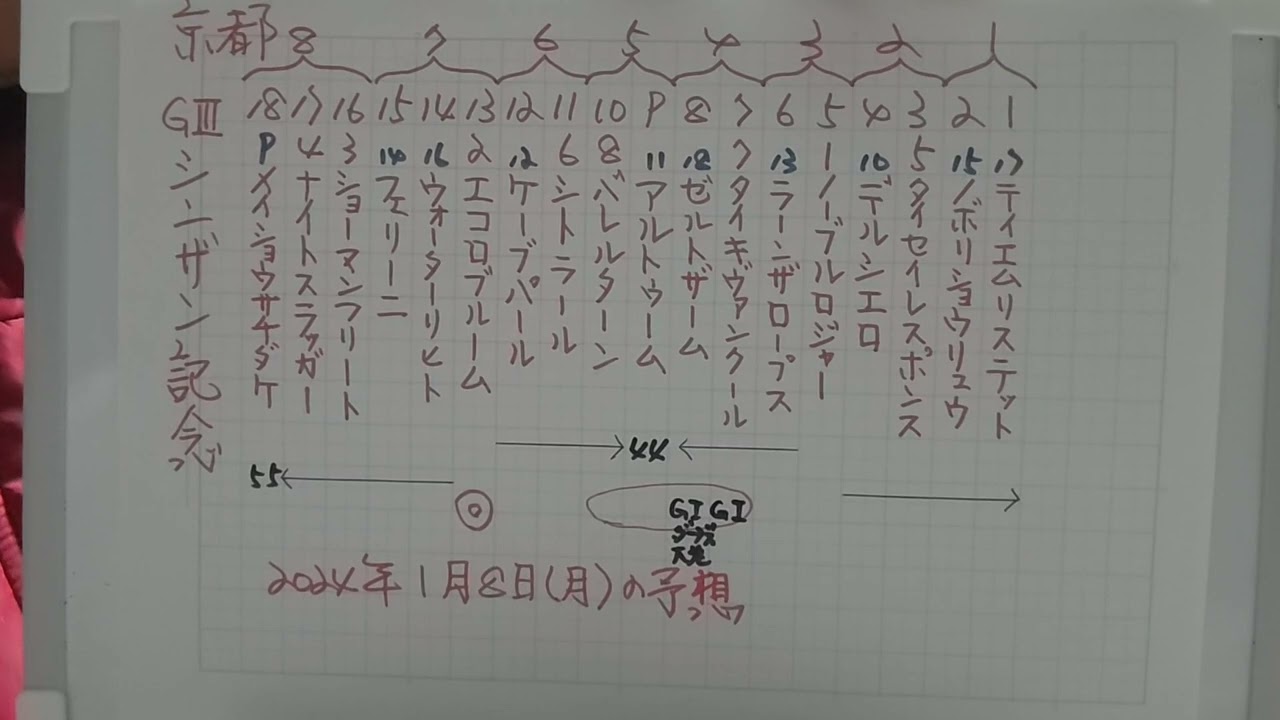 京都 8 7 6 5 4 3 2 1
GIII 18 17 16 15 14 13 12 11 10 9 8 7 6 5 4 3 2 1
9 4 3 14 16 2 12 6 8 11 18 7 13 1 10 5 15 17
シンザン記念
テイエムリステット
ノボリショウリュウ
タイセイレスポンス
デルシエロ
ノーブルロジャー
ラーンザロープス
タイキヴァンクール
ゼルトザーム
アルトゥーム
バレルターン
シトラール
ケーブパール
エコロブルーム
ウォーターリヒト
フェリーニ
ショーマンフリート
ナイトスラッガー
メイショウサチダケ
44
55
GI GI
2024年1月8日(月)の予想